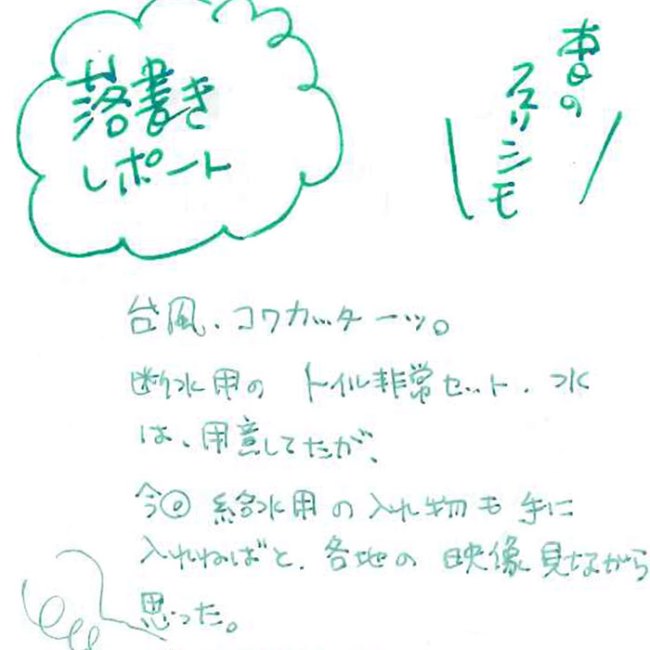 落書き
レポート
本日の
フスリシモ
台風、コワカッターッ。
断水用の トイレ非常セット、水
は、用意してたが、
今回 給水用の入れ物も 手に
入れねばと、各地の 映像見ながら
思った。